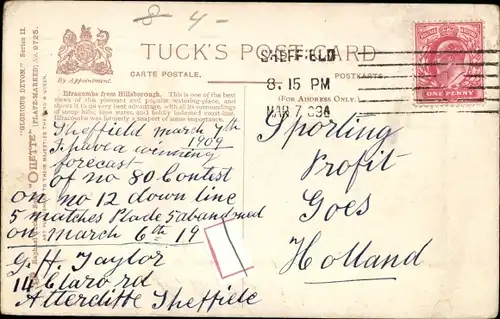 8 - 4 -
TUCK'S POST CARD
By Appointment.
CARTE POSTALE.
POSTKARTE.
(FOR ADDRESS ONLY.)
"GLORIOUS DEVON." Series II.
"OILETTE" (PLATE-MARKED) No. 9725.
Ilfracombe from Hillsborough. This is one of the best
views of this pleasant and popular watering-place, and
shows it in its very best advantage, with all its surroundings
of steep hills, blue water, and boldly indented coast line.
Ilfracombe was formerly a seaport of some importance.
SHEFFIELD
8.15 PM
MAR 7 09
ONE PENNY
Sheffield march 7th
1909
I have a winning
forecast
of no 80 Contest
on no 12 down line
5 matches Plade 5 abandoned
on march 6th 19
G. H. Taylor
14 Claro rd
Attercliffe Sheffield
Sporting
Profit
Goes
Holland